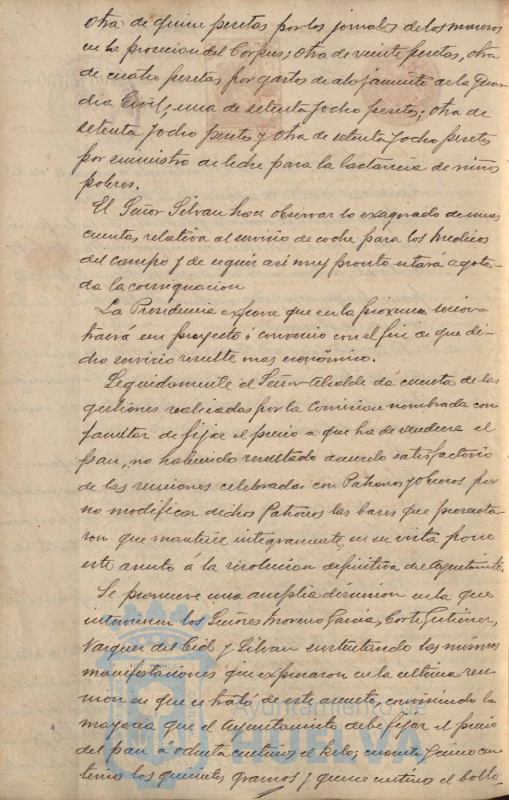 otra de quince pesetas por los jornales de los maceros
en la procesion del Corpus; otra de veinte pesetas, otra
de cuatro pesetas por gastos de alojamiento de la Guar
dia Civil; una de setenta y ocho pesetas; otra de
setenta y ocho pesetas y otra de setenta y ocho pesetas
por suministro de leche para la lactancia de niños
pobres.
El Señor Silvan hace observar lo exagerado de unas
cuentas relativa al servicio de coche para los Medicos
del campo y de seguir asi muy pronto estará agota
da la consignacion
La Presidencia expone que en la proxima sesion
traerá un proyecto ó convenio con el fin de que di
cho servicio resulte mas económico.
Seguidamente el Señor Alcalde dá cuenta de las
gestiones realizadas por la Comision nombrada con
facultar de fijar el precio a que ha de venderse el
pan, no habiendo resultado acuerdo satisfactorio
de las reuniones celebradas con Patronos y obreros por
no modificar dichos Patronos las bases que presenta
ron que mantiene integramente, en su vista pone
este asunto á la resolucion definitiva del Ayuntamto.
Se promueve una amplia discusion en la que
intervienen los Señores Moreno Garcia, Corte Gutierrez,
Vazquez del Cid y Silvan sustentando las mismas
manifestaciones que expusieron en la ultima reu
nion en que se trató de este asunto, conviniendo la
mayoria que el Ayuntamiento debe fijar el precio
del pan á ochenta centimos el kilo; cuarenta y cinco cen
timos los quinientos gramos y quince centimos el bollo
Ayuntamiento de
HUELVA